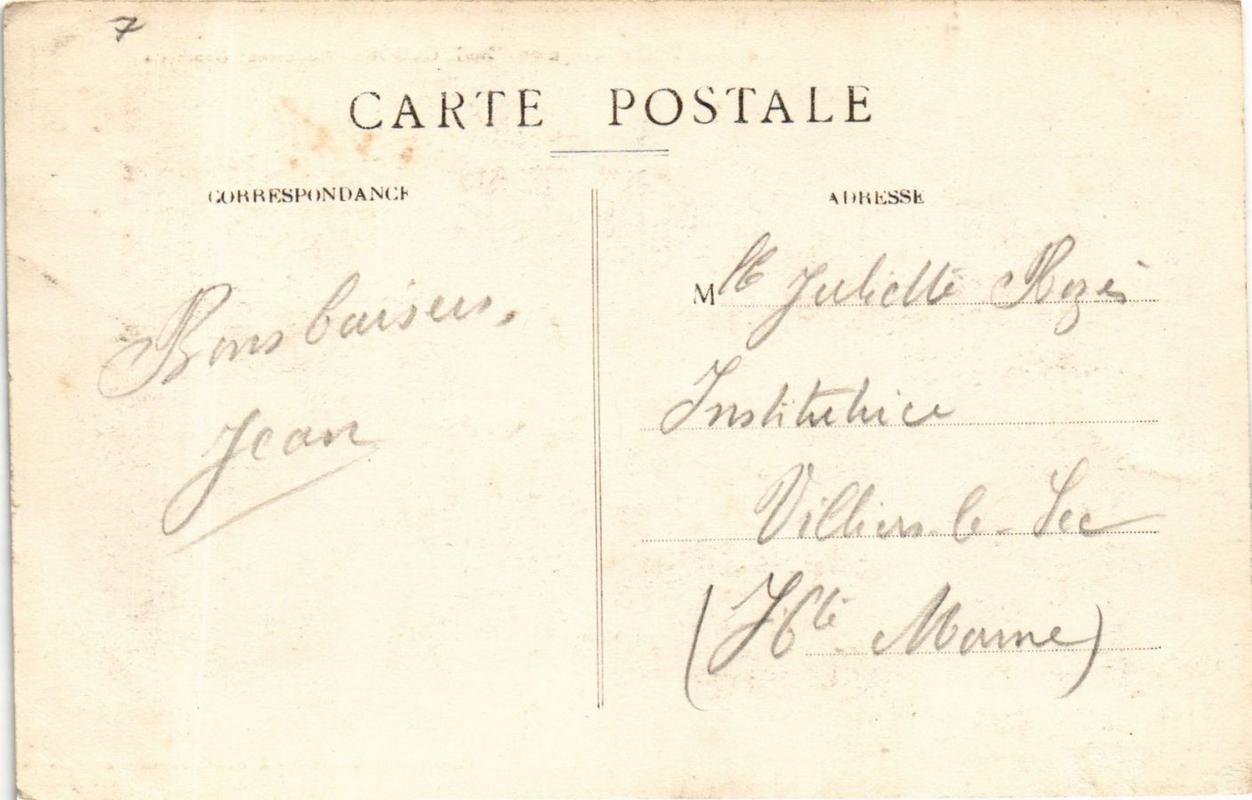 7
CARTE POSTALE
CORRESPONDANCE
Bons baisers.
Jean
ADRESSE
Mlle Juliette
Institutrice
Villiers-le-Sec
(Hte Marne)